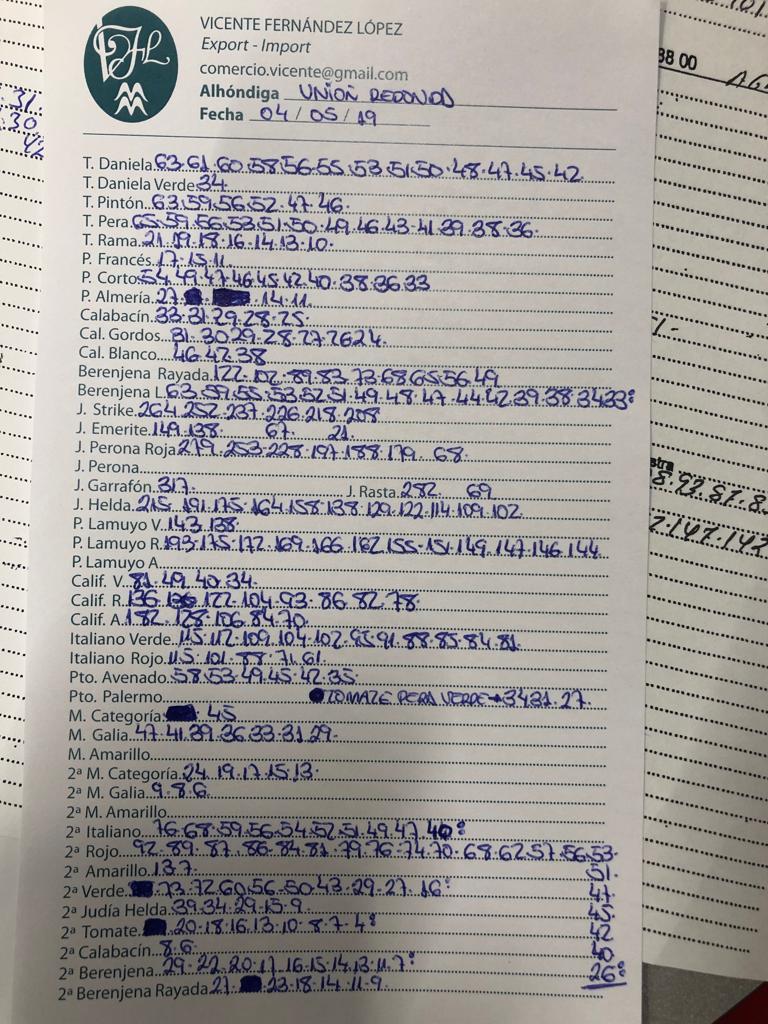 VICENTE FERNÁNDEZ LÓPEZ
Export - Import
comercio.vicente@gmail.com
Alhóndiga UNION REDONDO
Fecha 04 / 05 / 19
T. Daniela 63.61.60.58.56.55.53.51.50.48.47.45.42
T. Daniela Verde 34
T. Pintón 63.59.56.52.47.46.
T. Pera 65.59.56.53.51.50.49.46.43.41.39.38.36.
T. Rama 21.19.18.16.14.13.10.
P. Francés 17.15.11.
P. Corto 54.49.47.46.45.42.40.38.36.33
P. Almería 27. 14.11.
Calabacín 33.31.29.28.25.
Cal. Gordos 31.30.29.28.27.26.24.
Cal. Blanco 46.42.38
Berenjena Rayada 122.102.89.83.73.68.65.56.49
Berenjena L. 63.59.55.53.52.51.49.48.47.44.42.39.38.34.33:
J. Strike 264.252.237.226.218.208
J. Emerite 149.138. 67. 21.
J. Perona Roja 279.253.228.197.188.179. 68.
J. Perona
J. Garrafón 317. J. Rasta 282. 69
J. Helda 215.191.175.164.158.138.129.122.114.109.102.
P. Lamuyo V. 143.138.
P. Lamuyo R. 193.175.172.169.166.162.155.151.149.147.146.144.
P. Lamuyo A
Calif. V. 81.49.40.34.
Calif. R. 136. 122.104.93.86.82.78.
Calif. A. 182.128.106.84.70.
Italiano Verde 115.112.109.104.102.95.91.88.85.84.81.
Italiano Rojo 115.101.88.71.61.
Pto. Avenado 58.53.49.45.42.35.
Pto. Palermo TOMATE PERA VERDE→34.31.27.
M. Categoría 45
M. Galia 47.41.39.36.33.31.29.
M. Amarillo
2ª M. Categoría 24.19.17.15.13.
2ª M. Galia 9.8.6.
2ª M. Amarillo
2ª Italiano 76.68.59.56.54.52.51.49.47.40:
2ª Rojo 92.89.87.86.84.81.79.76.74.70.68.62.57.56.53.
51.
2ª Amarillo 13.7.
2ª Verde 73.72.60.56.50.43.29.27.16:
47.
2ª Judía Helda 39.34.29.15.9.
45.
2ª Tomate 20.18.16.13.10.8.7.4:
42
2ª Calabacín 8.6.
40
2ª Berenjena 29.22.20.17.16.15.14.13.11.7:
26:
2ª Berenjena Rayada 27. 23.18.14.11.9